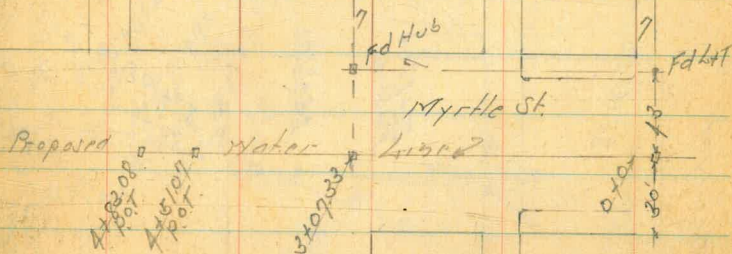 7
7
Fd Hub
7
Fd L&T
Myrtle St.
43
Proposed Water Line
4+83.08
P.O.T
4+51.07
P.O.T
3+07.33
0+0
30'